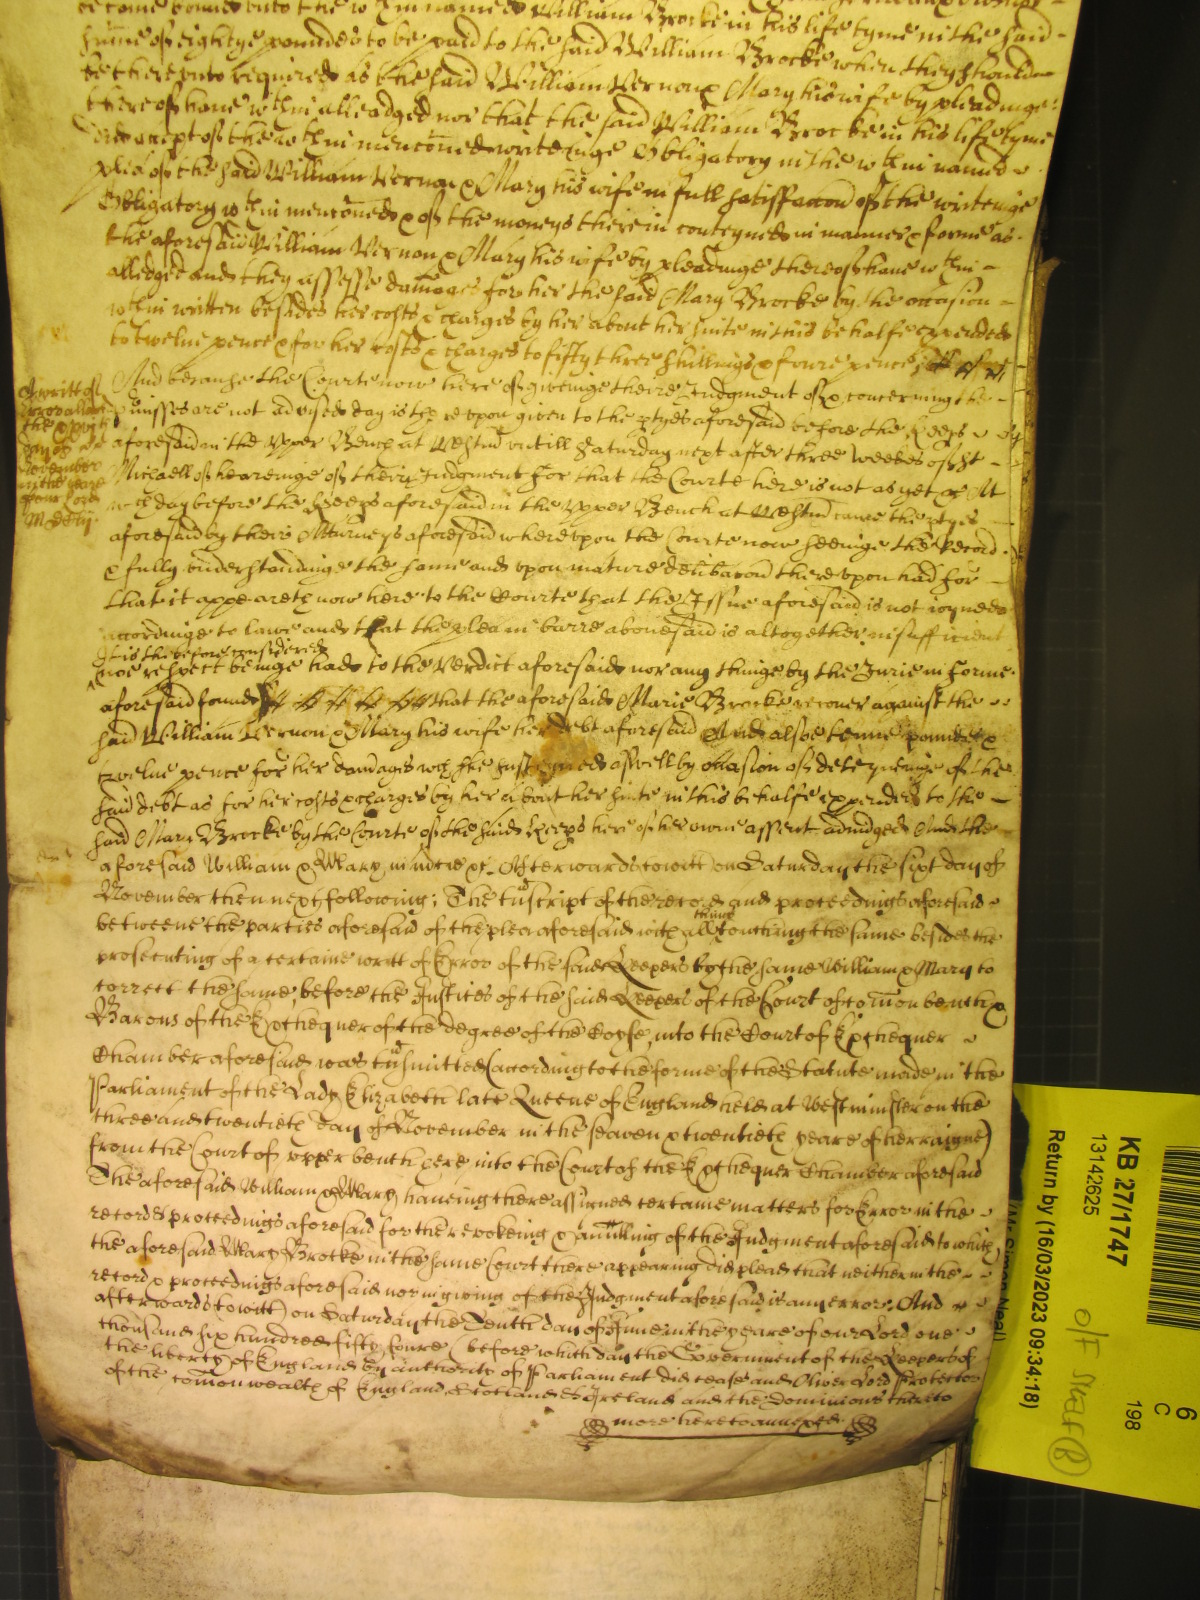 become bound unto the wthin named William Brocke in his life tyme in the said
summe of eightye poundes to be paid to the said William Brocke when they should
be thereunto required as the said William Vernon & Mary his wife by pleadinge
thereof have wthin alleadged nor that the said William Brocke in his life tyme
did accept of the wthin menconed writeinge Obligatory in the wthin named
plea of the said William Vernon & Mary his wife in full satisfaccon of the writeinge
Obligatory wthin menconed & of the moneys therein conteyned in manner & forme as
the aforesaid William Vernon & Mary his wife by pleadinge thereof have wthin
alledged and they assesse damages for her the said Mary Brocke by the occasion
wthin written besides her costs & charges by her about her suite in this behalfe expended
to twelve pence & for her costs & charges to fifty three shillings & foure pence
And because the Courte now here of giveinge theire Judgment of & concerninge the
pmisses are not advised day is thereupon given to the ptyes aforesaid before the Keeps
aforesaid in the Upper Bench at Westmr untill Saturday next after three weekes of St
Michaell of heareinge of their Judgment for that the Courte here is not as yet &c At
wch day before the Keeps aforesaid in the Upper Bench at Westmr came the ptyes
aforesaid by their Atturneys aforesaid whereupon the Courte now seeinge the Record
& fully understandinge the same and upon mature delibacon thereupon had for
that it appeareth now here to the Courte that the Issue aforesaid is not ioyned
accordinge to lawe and that the plea in barre abovesaid is altogether insufficient
It is therefore considered
noe respect beinge had to the Verdict aforesaid nor any thinge by the Jurie in forme
aforesaid found that the aforesaid Marie Brocke recover against the
said William Vernon & Mary his wife her debt aforesaid And alsoe tenne poundes &
twelve pence for her damages wch she susteyned aswell by occasion of deteyneinge of the
said debt as for her costs & charges by her about her suite in this behalfe expended to the
said Mary Brocke by the Courte of the said Keeps here of her owne assent adiudged And the
aforesaid William & Mary in mcie &c. Afterwards to witt on Saturday the sixt day of
November then next following; The tnscript of the record and proceedings aforesaid
betweene the parties aforesaid of the plea aforesaid with all things touching the same besides the
prosecuting of a certaine writt of Error of the said Keepers by the same William & Mary to
correct the same, before the Justices of the said Keepers of the Court of comon bench &
Barons of the Exchequer of the degree of the Coyfe, into the Court of Exchequer
Chamber aforesaid was tnsmitted (according to the forme of the Statute made in the
Parliament of the Lady Elizabeth late Queene of England held at Westminster on the
three and twentieth day of November in the seaven & twentieth yeare of her raigne)
from the Court of upper bench here into the Court of the Exchequer Chamber aforesaid
The aforesaid William & Mary haveing there assigned certaine matters for Error in the
record & proceedings aforesaid for the revokeing & anulling of the Judgment aforesaid to which
the aforesaid Mary Brocke in the same Court there appearing did plead that neither in the
record & proceedings aforesaid nor in giving of the Judgment aforesaid is any error. And
afterwards (to witt) on Saturday the Tenth day of June in the yeare of our Lord one
thousand six hundred fifty foure (before which day the Government of the Keepers of
the liberty of England by authority of Parliament did cease and Oliver Lord Protector
of the comonwealth of England Scotland & Ireland and the Dominions thereto
more hereto annexed.
A writt of
Error
the
day of
November
in the yeare
of our Lord
KB 27/1747
13142625
Return by (16/03/2023 09:34:18)
6
C
198
O/F